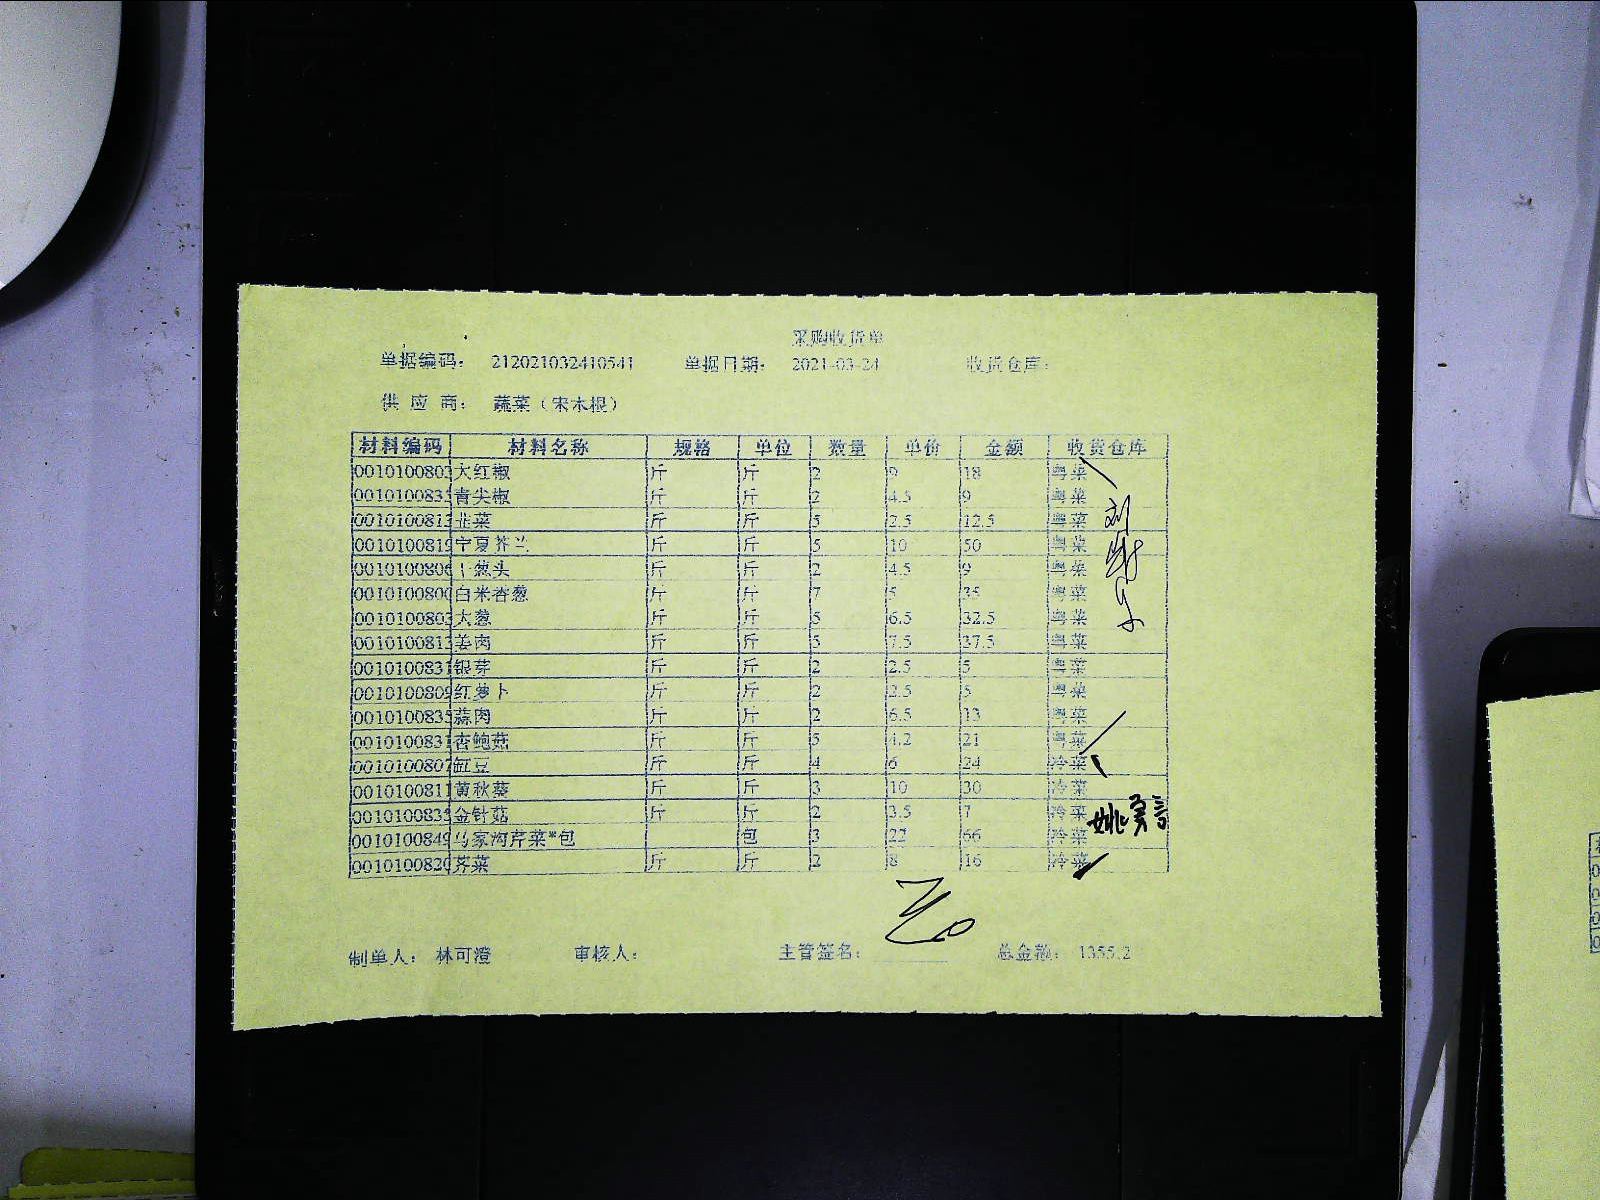 采购收货单
单据编码： 212021032410541 单据日期： 2021-03-24 收货仓库：
供 应 商： 蔬菜（宋木根）
材料编码 材料名称 规格 单位 数量 单价 金额 收货仓库
0010100803 大红椒 斤 斤 2 9 18 粤菜
001010083 青尖椒 斤 斤 2 4.5 9 粤菜
001010081 韭菜 斤 斤 5 2.5 12.5 粤菜
0010100819 宁夏芥兰 斤 斤 5 10 50 粤菜
0010100806 干葱头 斤 斤 2 4.5 9 粤菜
0010100800 白米香葱 斤 斤 7 5 35 粤菜
0010100803 大葱 斤 斤 5 6.5 32.5 粤菜
001010081 姜肉 斤 斤 5 7.5 37.5 粤菜
0010100831 银芽 斤 斤 2 2.5 5 粤菜
0010100809 红萝卜 斤 斤 2 2.5 5 粤菜
0010100835 蒜肉 斤 斤 2 6.5 13 粤菜
001010083 杏鲍菇 斤 斤 5 4.2 21 粤菜
0010100807 缸豆 斤 斤 4 6 24 冷菜
0010100811 黄秋葵 斤 斤 3 10 30 冷菜
0010100835 金针菇 斤 斤 2 3.5 7 冷菜
0010100849 马家沟芹菜*包 包 3 22 66 冷菜
0010100820 芥菜 斤 斤 2 8 16 冷菜
制单人： 林可澄 审核人： 主管签名： 总金额： 1355.2